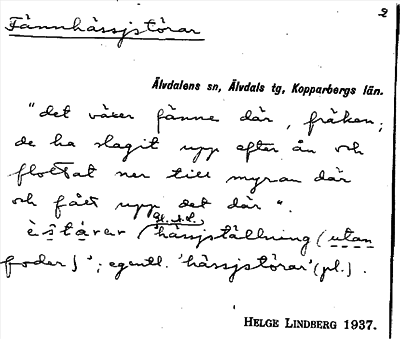 2
Fännhässjstörar
Älvdalens sn, Älvdals tg, Kopparbergs län.
"det växer fänne där, fräken;
de ha slagit upp efter ån och
flottat ner till myran där
och fått upp det där".
hässjställning (utan
foder)'; egentl. 'hässjstörar' (pl.).
HELGE LINDBERG 1937.